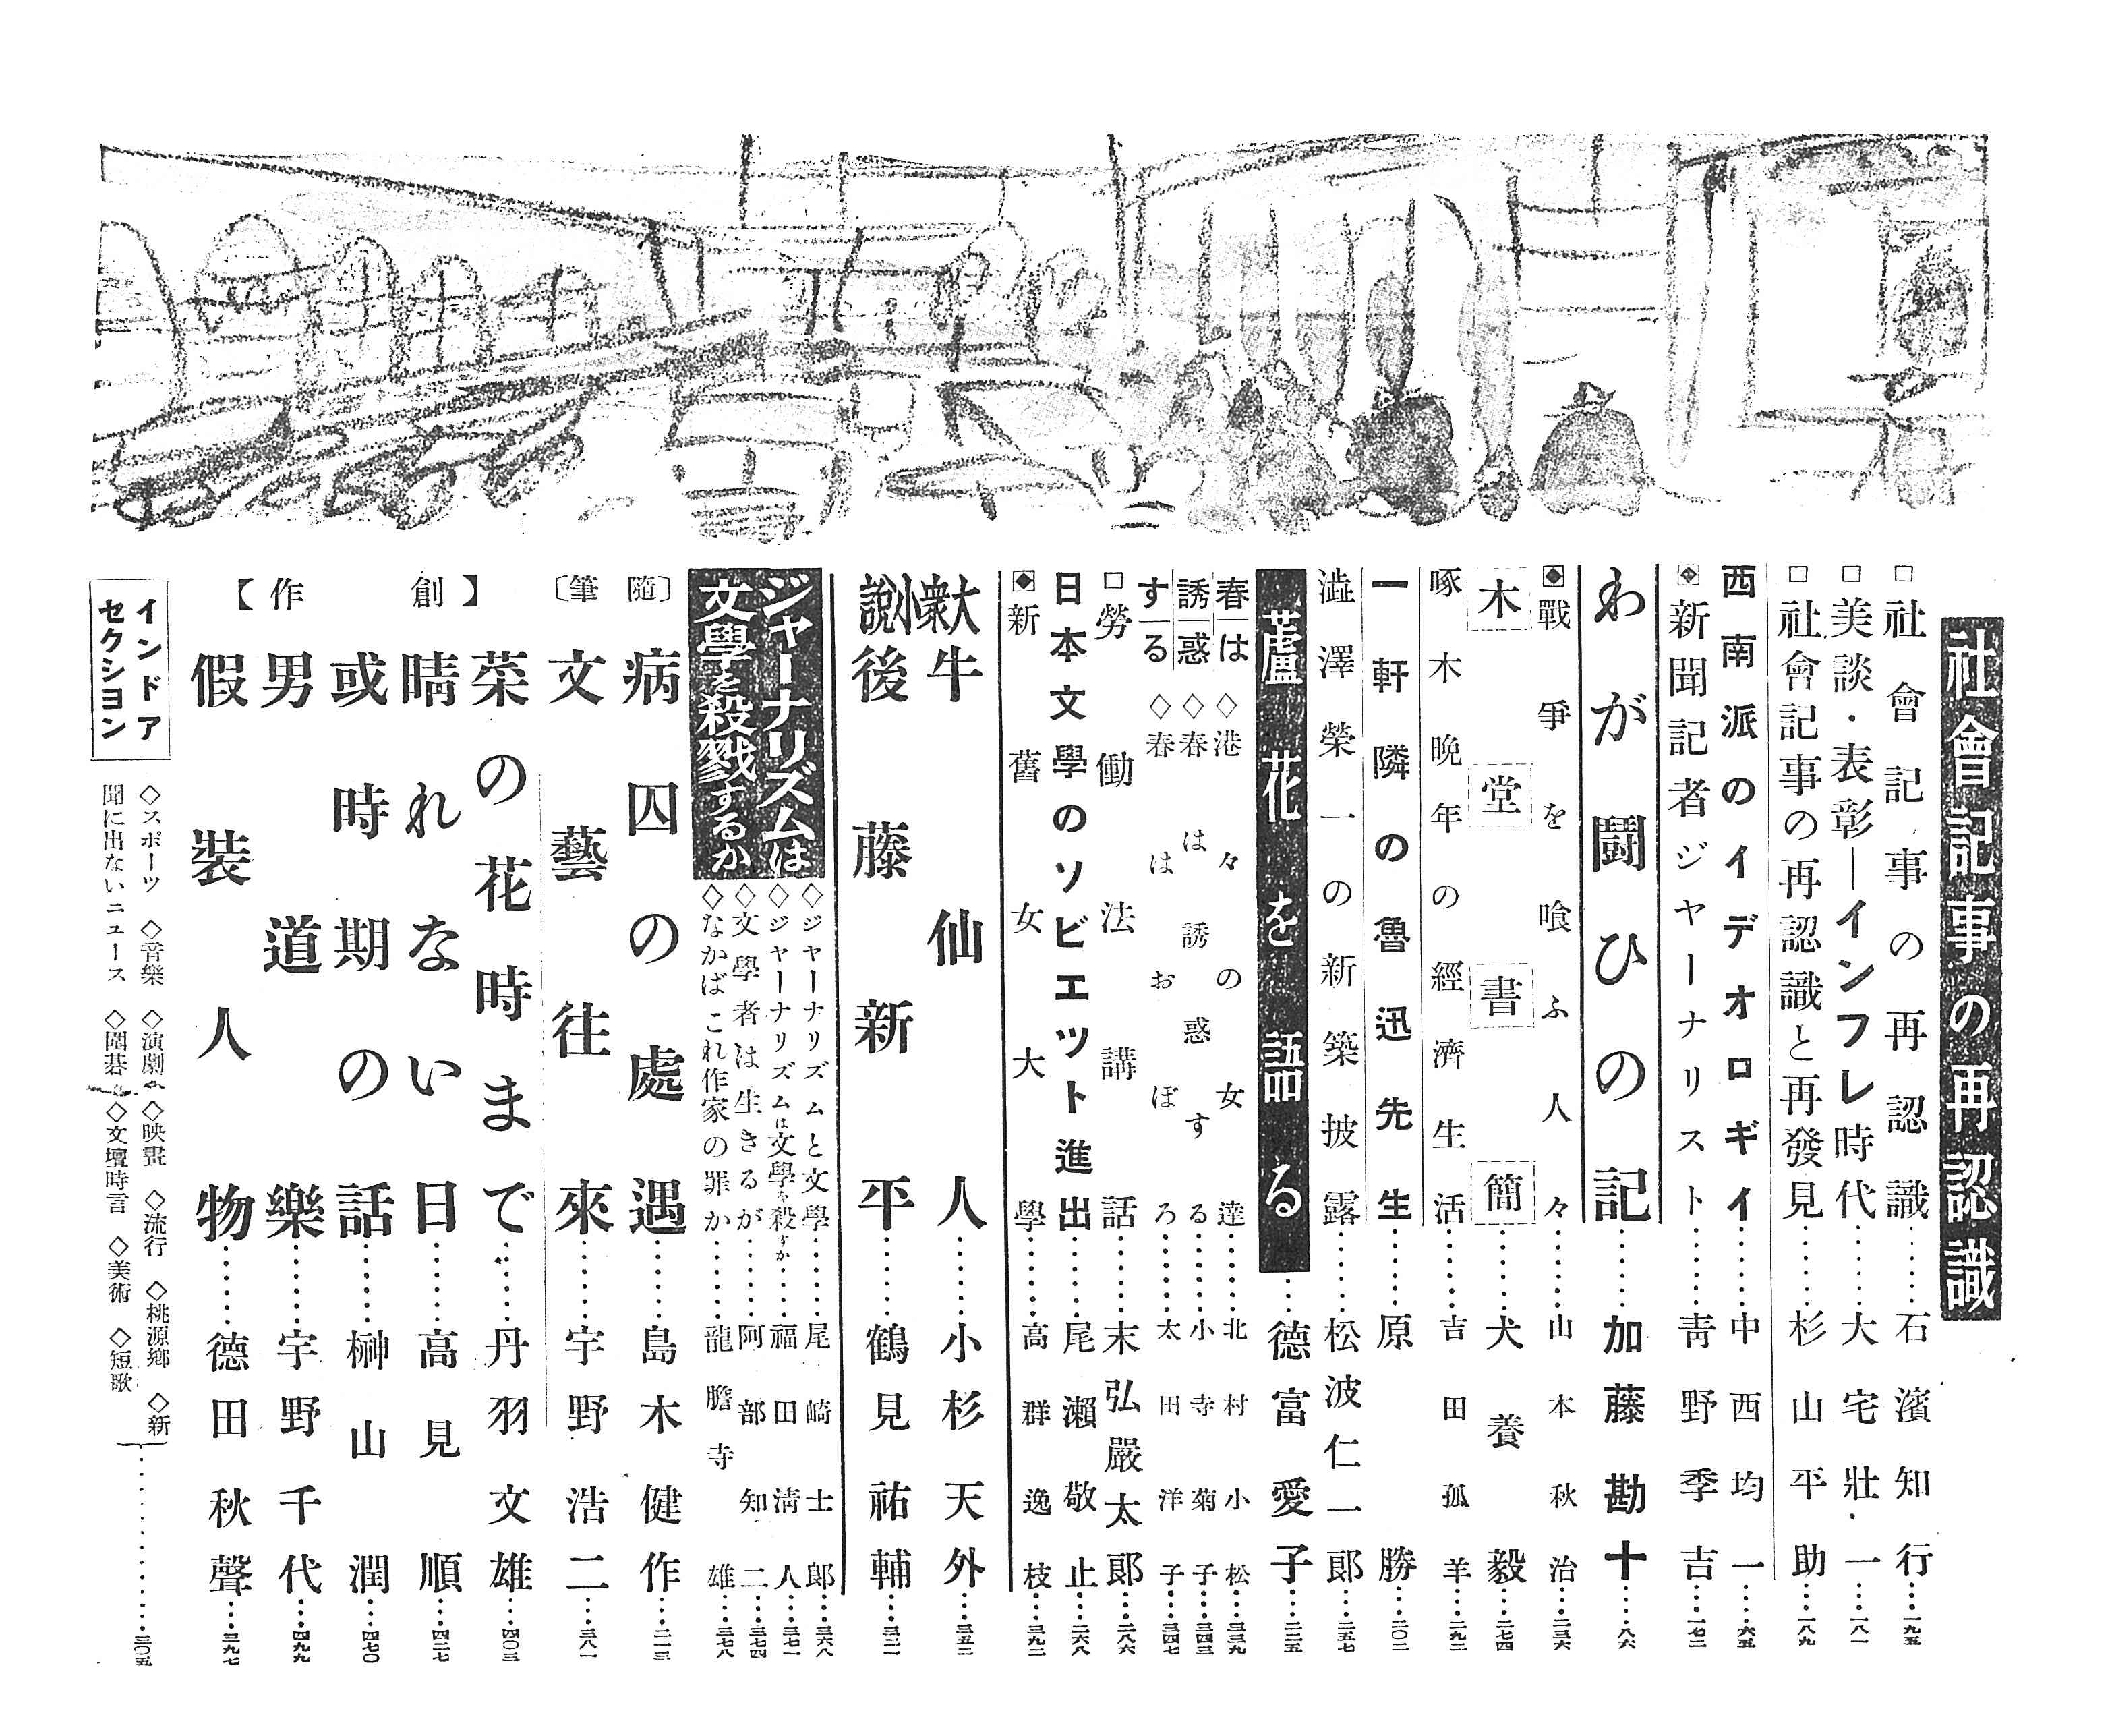 社會記事の再認識
□社會記事の再認識……石濱知行……一九五
□美談・表彰―インフレ時代……大宅壯一……一八一
□社會記事の再認識と再發見……杉山平助……一八九
西南派のイデオロギイ……中西均一……六五
新聞記者ジャーナリスト……靑野季吉……一七二
わが鬪ひの記……加藤勘十……八六
戰爭を喰ふ人々……山本秋治……二三六
木堂書簡……犬養毅……二七四
啄木晩年の經濟生活……吉田孤羊……二九二
一軒隣の魯迅先生……原勝……二〇二
澁澤榮一の新築披露……松波仁一郎……二五七
蘆花を語る……德富愛子……二二五
春は誘惑する
◇港々の女達……北村小松……三三九
◇春は誘惑する……小寺菊子……三四三
◇春はおぼろ……太田洋子……三四七
□勞働法講話……末弘嚴太郎……二八六
日本文學のソビエット進出……尾瀨敬止……二六八
◆新舊女大學……高群逸枝……三九二
大衆小說
牛仙人……小杉天外……三五二
後藤新平……鶴見祐輔……三二一
ジャーナリズムは文學を殺戮するか
◇ジャーナリズムと文學……尾崎士郎……三六八
◇ジャーナリズムは文學を殺すか……福田淸人……三七一
◇文學者は生きるが……阿部知二……三七四
◇なかばこれ作家の罪か……龍膽寺雄……三七八
〔隨筆〕
病囚の處遇……島木健作……二一三
文藝往來……宇野浩二……三八一
【創作】
菜の花時まで……丹羽文雄……四〇三
晴れない日……高見順……四二七
或時期の話……榊山潤……四七〇
男道樂……宇野千代……四九九
假裝人物……德田秋聲……三九七
インドアセクション
◇スポーツ ◇音樂 ◇演劇 ◇映畫 ◇流行 ◇桃源鄕 ◇新
聞に出ないニュース ◇圍碁 ◇文壇時言 ◇美術 ◇短歌
……三〇五